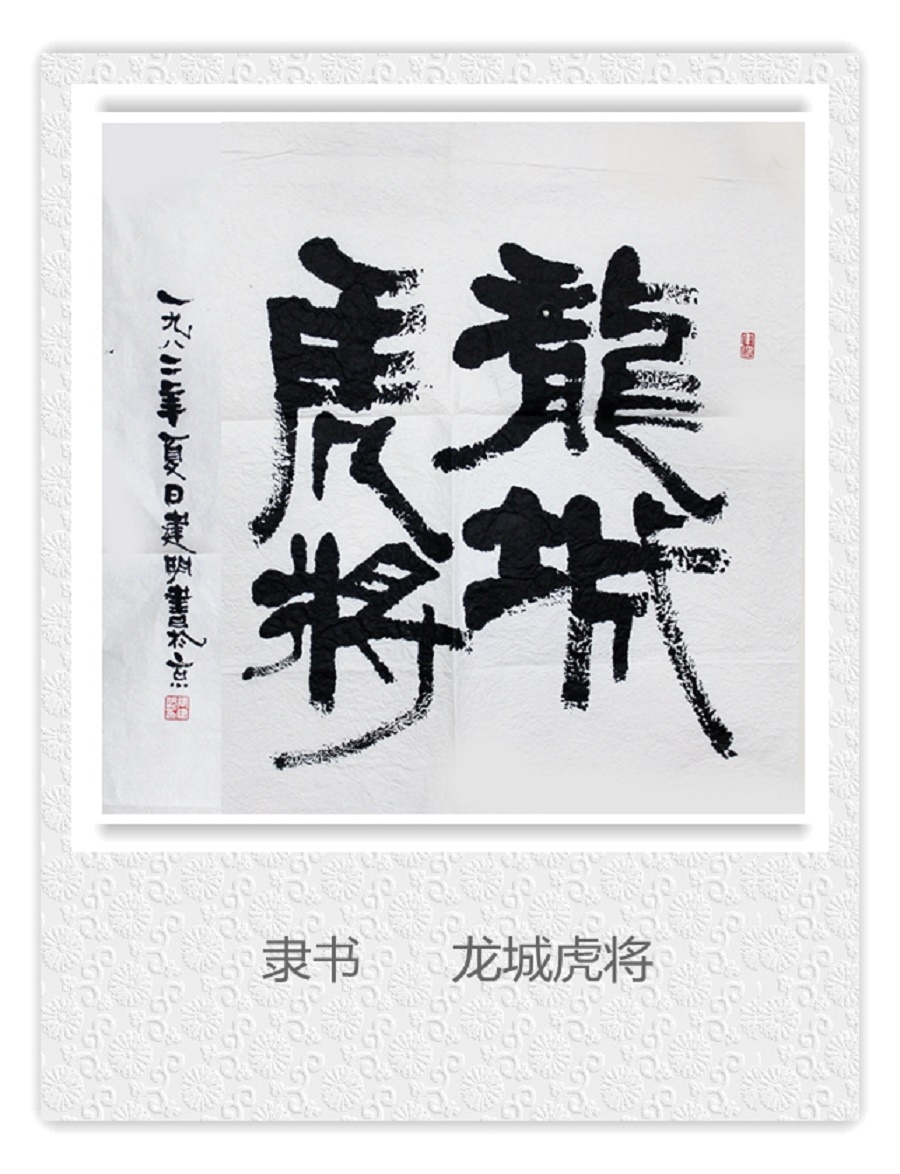 龍城
虎将
一九八二年夏日建明書於京
隶书 龙城虎将